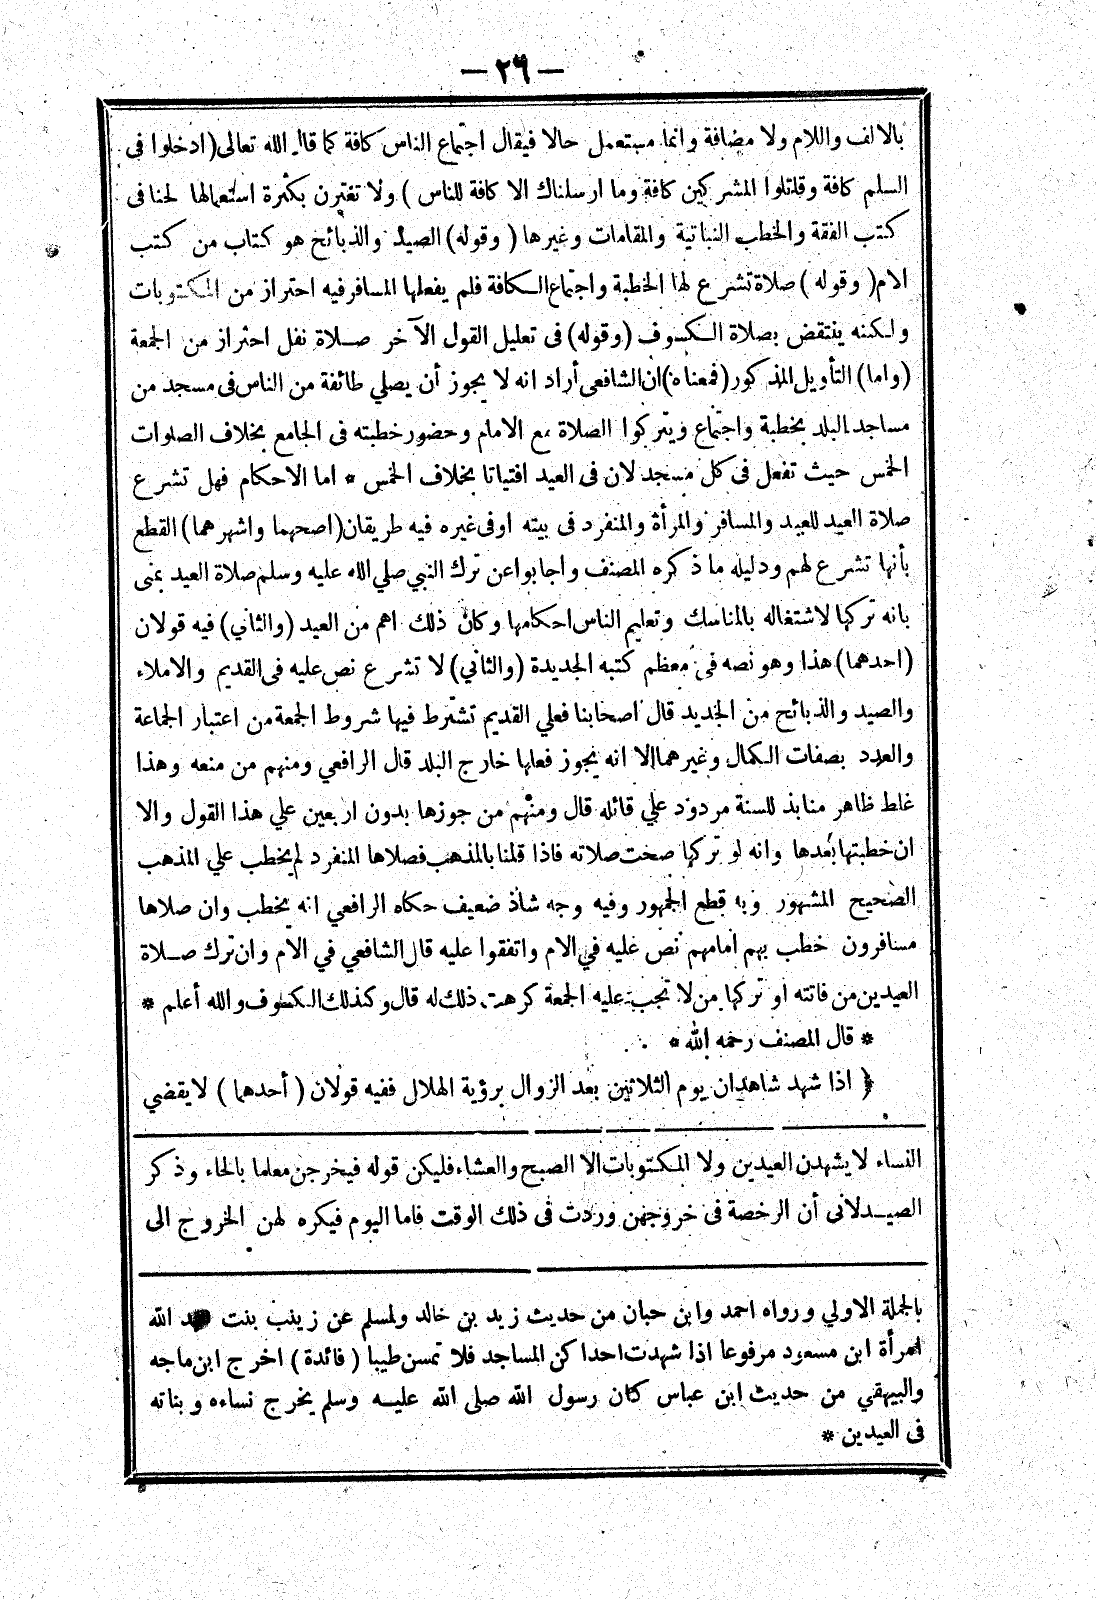 — ٢٦ —
بالالف واللام ولا مضافة وانما مستعمل حالا فيقال اجتماع الناس كافة كما قال الله تعالى (ادخلوا في
السلم كافة وقاتلوا المشركين كافة وما ارسلناك الا كافة للناس ) ولا تغترن بكثرة استعمالها لحنا فى
كتب الفقة والخطب النباتية والمقامات وغيرها ( وقوله) الصيد والذبائح هو كتاب من كتب
الام( وقوله ) صلاة تشرع لها الخطبة واجتماع الكافة فلم يفعلها المسافر فيه احتراز من المكتوبات
ولكنه ينتقض بصلاة الكسوف (وقوله) فى تعليل القول الآخر صلاة نفل احتراز من الجمعة
(واما) التأويل المذكور (فمعناه) ان الشافعى أراد انه لا يجوز أن يصلي طائفة من الناس فى مسجد من
مساجد البلد بخطبة واجتماع ويتركوا الصلاة مع الامام وحضور خطبته فى الجامع بخلاف الصلوات
الخمس حيث تفعل فى كل مسجد لان فى العيد افتياتا بخلاف الخمس * اما الاحكام فهل تشرع
صلاة العيد للعبد والمسافر والمرأة والمنفرد فى بيته اوفى غيره فيه طريقان (اصحهما واشهرهما) القطع
بأنها تشرع لهم ودليله ما ذكره المصنف واجابوا عن ترك النبي صلي الله عليه وسلم صلاة العيد بمنى
بانه تركها لاشتغاله بالمناسك وتعليم الناس احكامها وكان ذلك اهم من العيد (والثاني) فيه قولان
(احدهما) هذا وهو نصه فى معظم كتبه الجديدة (والثاني) لا تشرع نص عليه فى القديم والاملاء
والصيد والذبائح من الجديد قال اصحابنا فعلي القديم تشترط فيها شروط الجمعة من اعتبار الجماعة
والعدد بصفات الكمال وغيرهما الا انه يجوز فعلها خارج البلد قال الرافعي ومنهم من منعه وهذا
غلط ظاهر منابذ للسنة مردود علي قائله قال ومنهم من جوزها بدون اربعين علي هذا القول والا
ان خطبتها بعدها وانه لو تركها صحت صلاته فاذا قلنا بالمذهب فصلاها المنفرد لم يخطب علي المذهب
الصحيح المشهور وبه قطع الجمهور وفيه وجه شاذ ضعيف حكاه الرافعي انه يخطب وان صلاها
مسافرون خطب بهم امامهم نص عليه في الام واتفقوا عليه قال الشافعي في الام وان ترك صلاة
العيدين من فاتته او تركها من لا تجب عليه الجمعة كرهت ذلك له قال وكذلك الكسوف والله أعلم *
* قال المصنف رحمه الله *
﴿ اذا شهد شاهدان يوم الثلاثين بعد الزوال برؤية الهلال ففيه قولان ( أحدهما ) لا يقضي
النساء لا يشهدن العيدين ولا المكتوبات الا الصبح والعشاء فليكن قوله فيخرجن معلما بالحاء وذكر
الصيدلانى أن الرخصة فى خروجهن وردت فى ذلك الوقت فاما اليوم فيكره لهن الخروج الى
بالجملة الاولي ورواه احمد وابن حبان من حديث زيد بن خالد ولمسلم عن زينب بنت الله
امرأة ابن مسعود مرفوعا اذا شهدت احدا كن المساجد فلا تمسن طيبا ( فائدة ) اخرج ابن ماجه
والبيهقي من حديث ابن عباس كان رسول الله صلى الله عليه وسلم يخرج نساءه وبناته
فى العيدين *